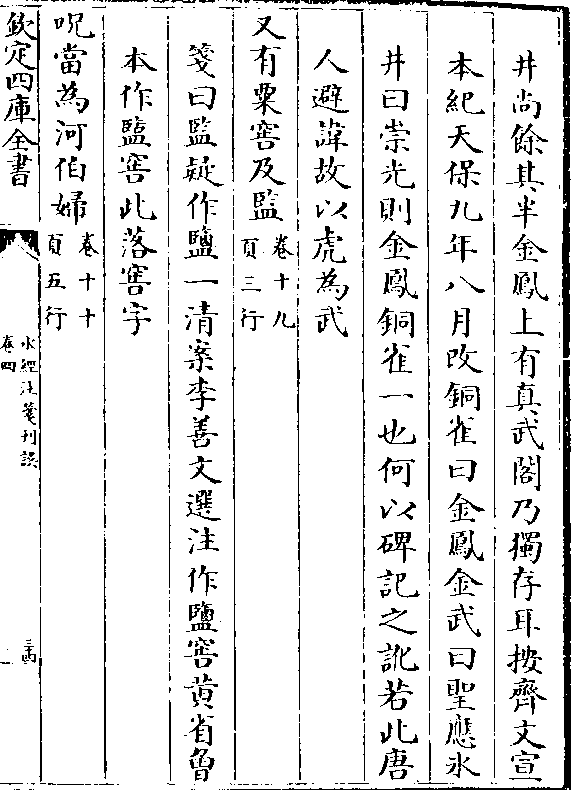 井尚餘其半金鳳上有真武閣乃獨存耳按齊文宣
本紀天保九年八月改銅雀曰金鳳金武曰聖應氷
井曰崇光則金鳳銅雀一也何以碑記之訛若此唐
人避諱故以虎為武
又有粟窖及監
卷十九
頁三行
箋曰監疑作鹽一清案李善文選注作鹽窖黄省魯
本作鹽窖此落窖字
呪當為河伯婦
卷十十
頁五行
欽定四庫全書
水經注箋刊誤
卷四